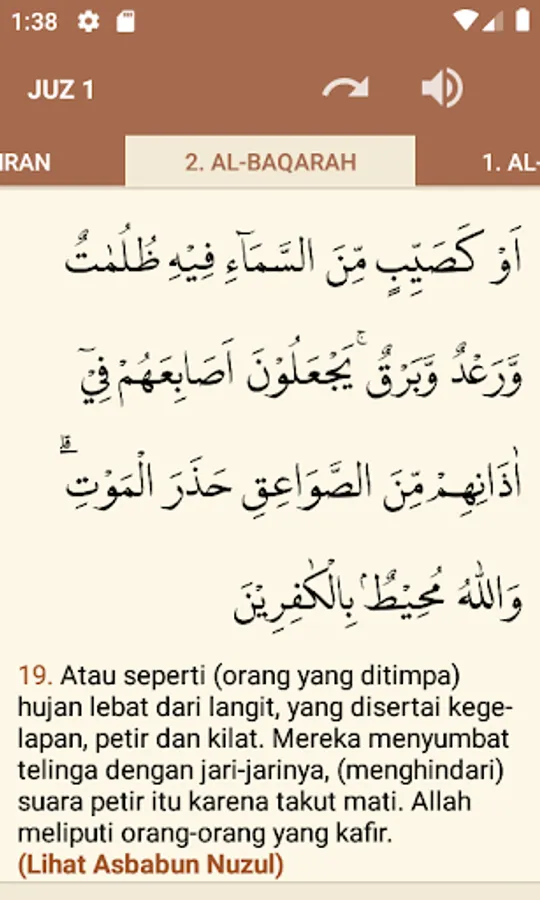 1:38
JUZ 1
IRAN
2. AL-BAQARAH
1. AL-
اَوْ كَصَيِّبٍ مِّنَ السَّمَاۤءِ فِيْهِ ظُلُمٰتٌ
وَّرَعْدٌ وَّبَرْقٌۚ يَجْعَلُوْنَ اَصَابِعَهُمْ فِيْٓ
اٰذَانِهِمْ مِّنَ الصَّوَاعِقِ حَذَرَ الْمَوْتِۗ
وَاللّٰهُ مُحِيْطٌۢ بِالْكٰفِرِيْنَ
19. Atau seperti (orang yang ditimpa)
hujan lebat dari langit, yang disertai kege-
lapan, petir dan kilat. Mereka menyumbat
telinga dengan jari-jarinya, (menghindari)
suara petir itu karena takut mati. Allah
meliputi orang-orang yang kafir.
(Lihat Asbabun Nuzul)